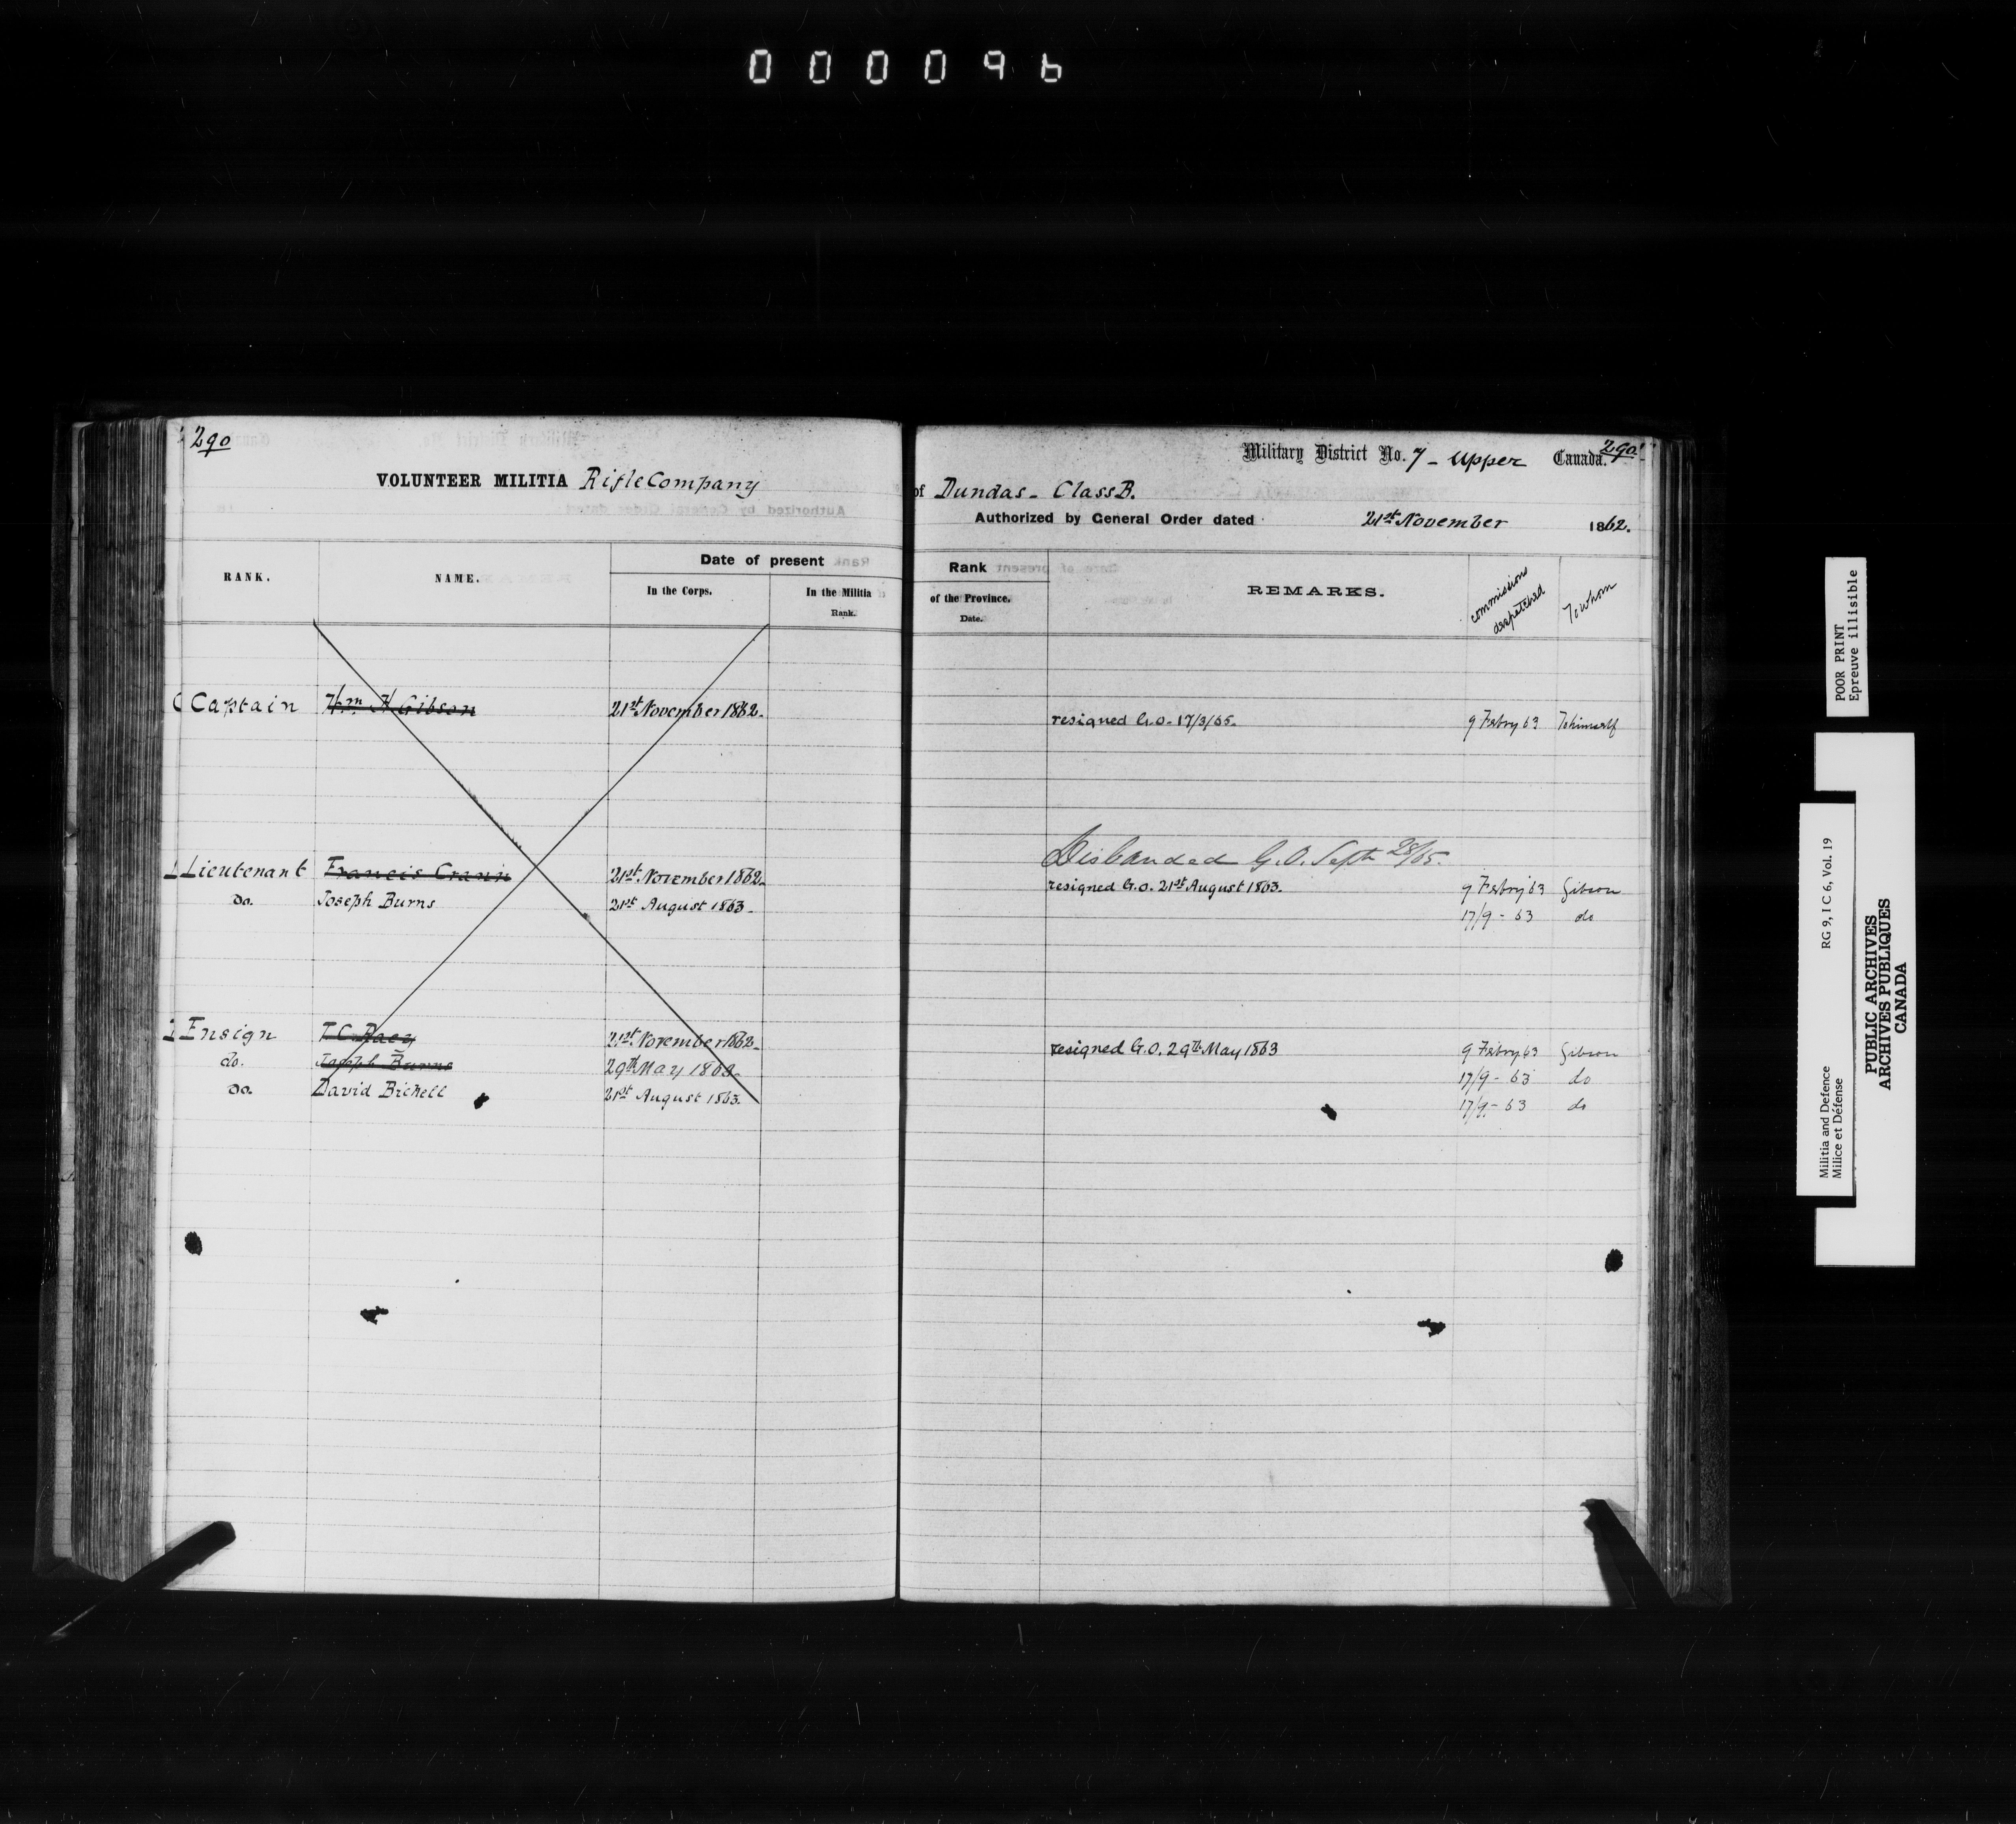 000096
290
VOLUNTEER MILITIA Rifle Company
Military District No. 7 - Upper Canada. 290
of Dundas - Class B.
Authorized by General Order dated 21st November 1862.
RANK. NAME. Date of present Rank
In the Corps. In the Militia of the Province.
Rank. Date.
REMARKS. commissions despatched To whom
Captain Wm H Gibson 21st November 1862. resigned G.O. 17/3/65. 9 Febry 63 To himself
Disbanded G.O. Sept 28/65.
1 Lieutenant Francis 21st November 1862. resigned G.O. 21st August 1863. 9 Febry 63 Gibson
Do. Joseph Burns 21st August 1863. 17/9 - 63 do
1 Ensign T.C. 21st November 1862. resigned G.O. 29th May 1863 9 Febry 63 Gibson
do. Joseph Burns 29th May 1863. 17/9 - 63 do
Do. David Bickell 21st August 1863. 17/9 - 63 do
POOR PRINT
Epreuve illisible
Militia and Defence RG 9, I C 6, Vol. 19
Milice et Défense
PUBLIC ARCHIVES
ARCHIVES PUBLIQUES
CANADA